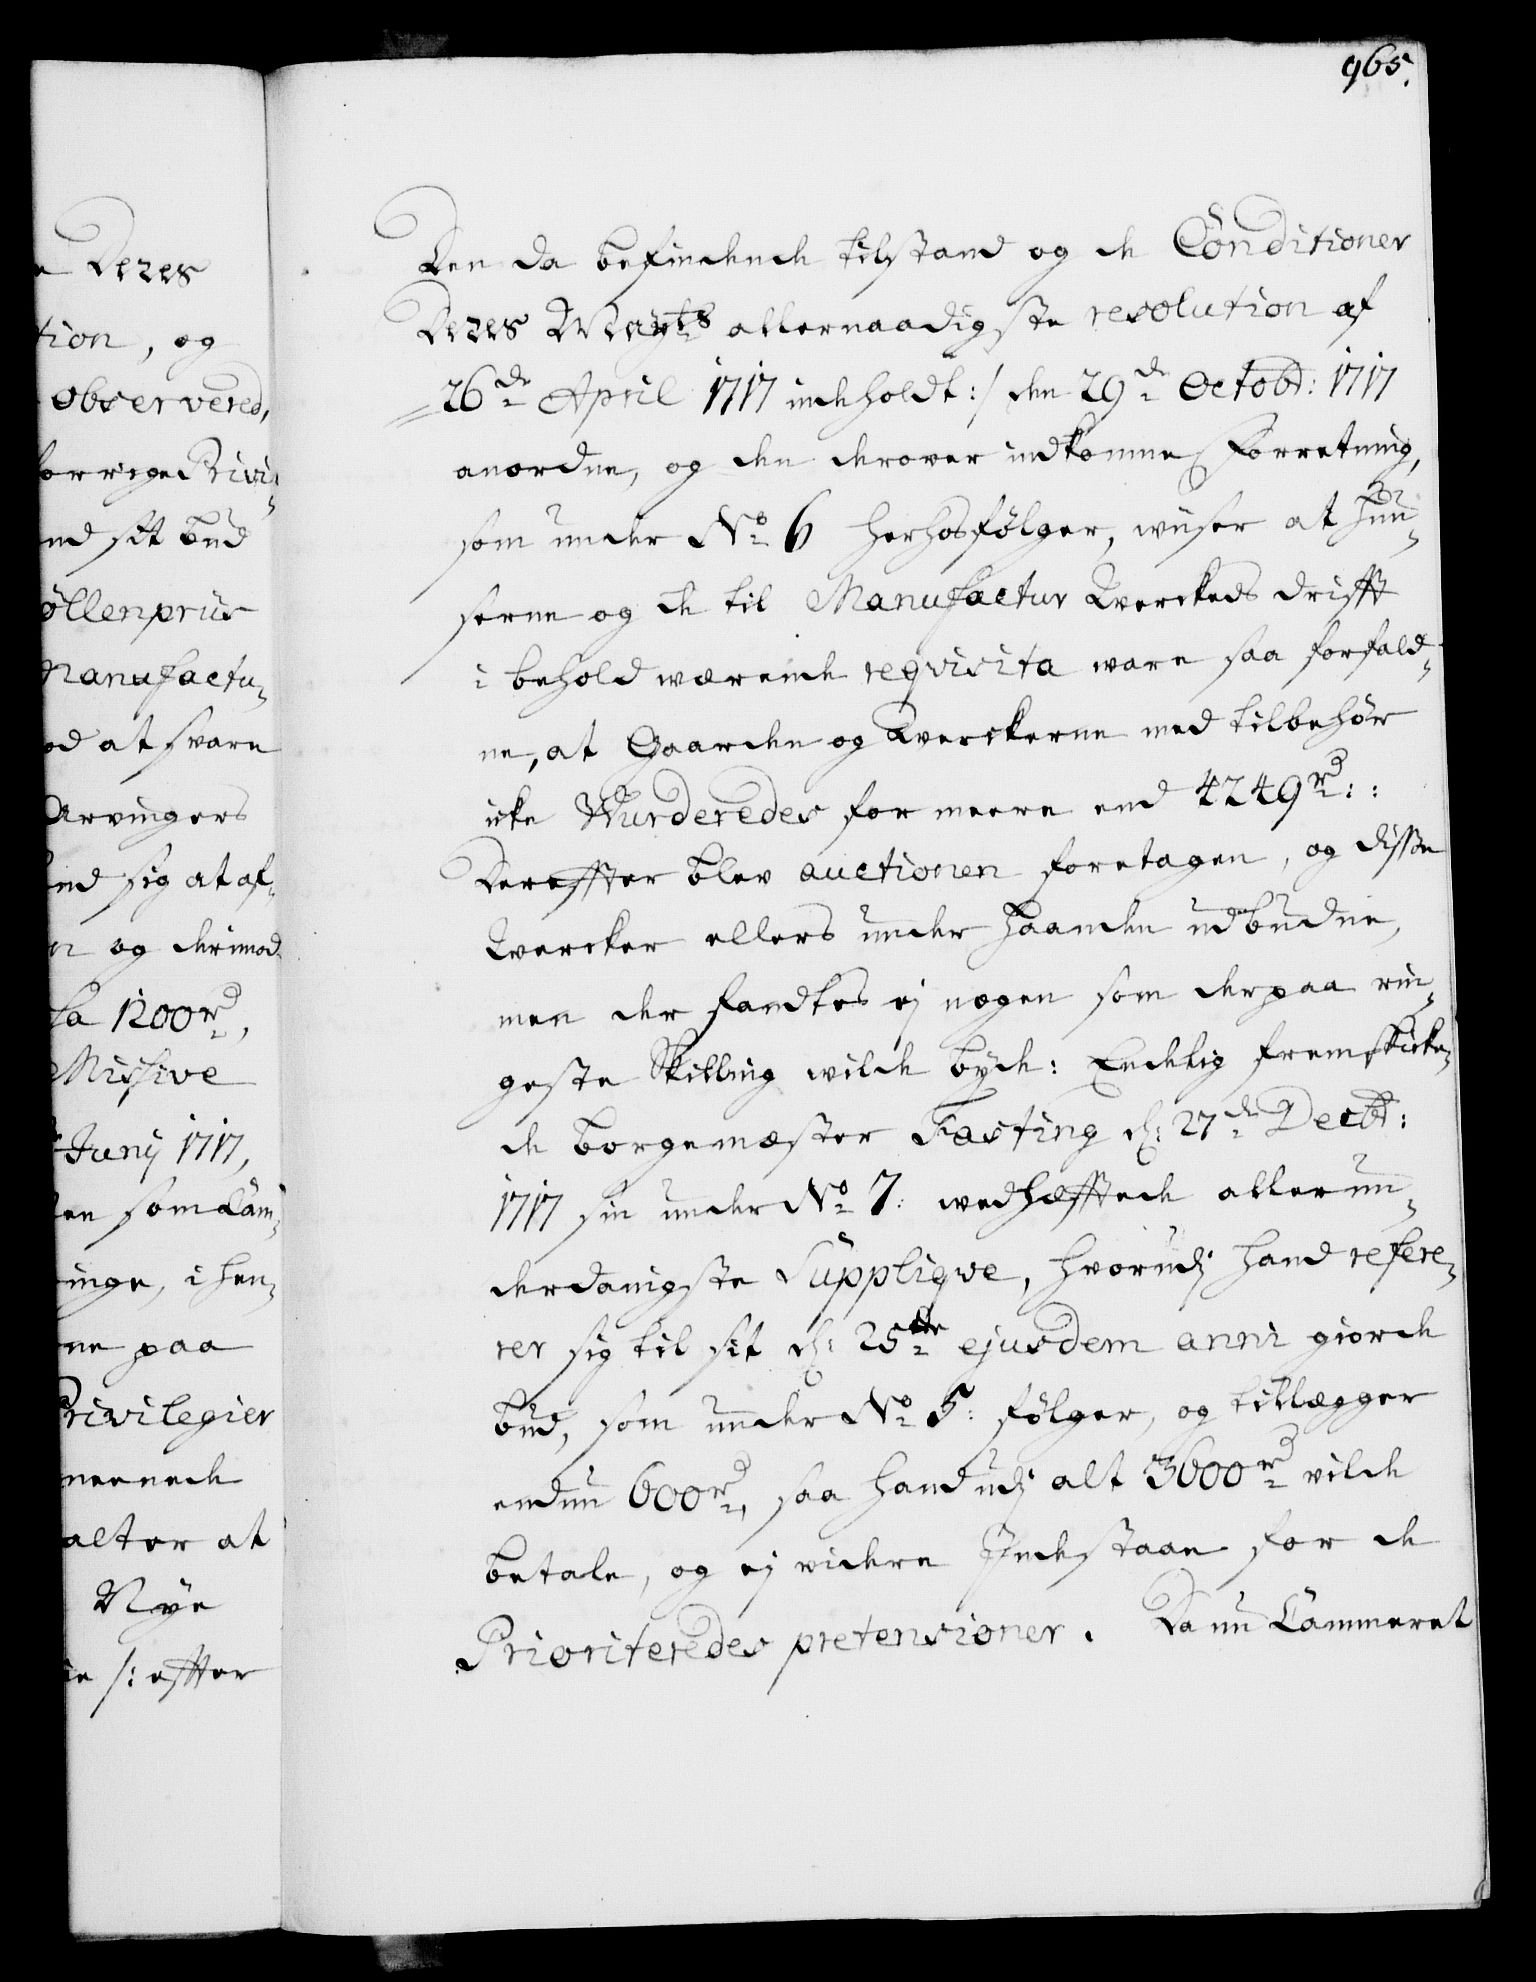 965.
e Deres
tion, og
observered,
forrige Privi-
nd sit bud
øllenpriis
Manufactu-
od at svare
Arvingers
ind sig at af-
n og derimod
fa 1200 rd,
Missive
Junij 1717,
en som Cam-
inge, i hen-
ne paa
Privilegier
meenede
alter at
Nye
ie /: effter
Den da befindende tilstand og de Conditioner
Deres Mayts allernaadigste resolution af
26de April 1717 indeholdt :/ den 29de Octobr: 1717
anordne, og den derover indkomne Forretning,
som under No 6 herhos følger, wiiser at Huu-
serne og de til Manufactur Werckeds drifft
i behold wærende reqvisita ware saa forfald-
ne, at Gaarden og Werckerne med tilbehør
icke Wurderedes for meere end 4249 rd::
Dereffter blev auctionen foretagen, og disse
Wercker ellers under haanden udbudne,
men der fandtes ej nogen som derpaa rin-
geste Skilling wilde byde: Endelig fremskicke-
de borgemæster Fasting d: 27de Decbr:
1717 sin under No 7: wedhæfftede allerun-
derdanigste Suppliqve, hvorudj hand refere-
rer sig til sit d: 25tte ejusdem anni giorde
bud, som under No 5: følger, og tillægger
endnu 600 rd, saa hand udj alt 3600 rd vilde
betale, og ej widere Indestaae for de
Prioriteredes pretensioner. Da nu Cammeret